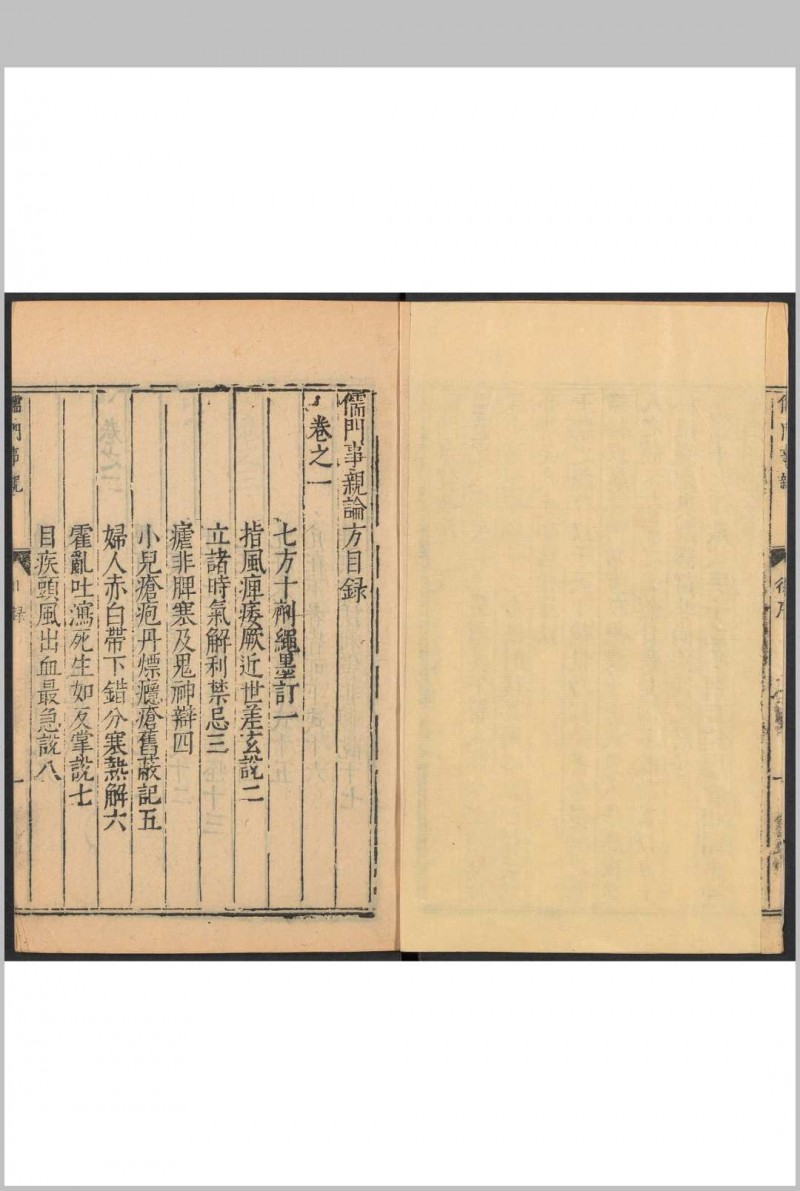 儒門事親論方目録
卷之一
七方十劑繩墨訂一
指風痺痿厥近世差玄說二
立諸時氣解利禁忌三
瘧非脾寒及鬼神辯四
小兒瘡疱丹熛癮瘡舊蔽記五
婦人赤白帶下錯分寒熱解六
霍亂吐瀉死生如反掌說七
目疾頭風出血最急說八
儒門事親